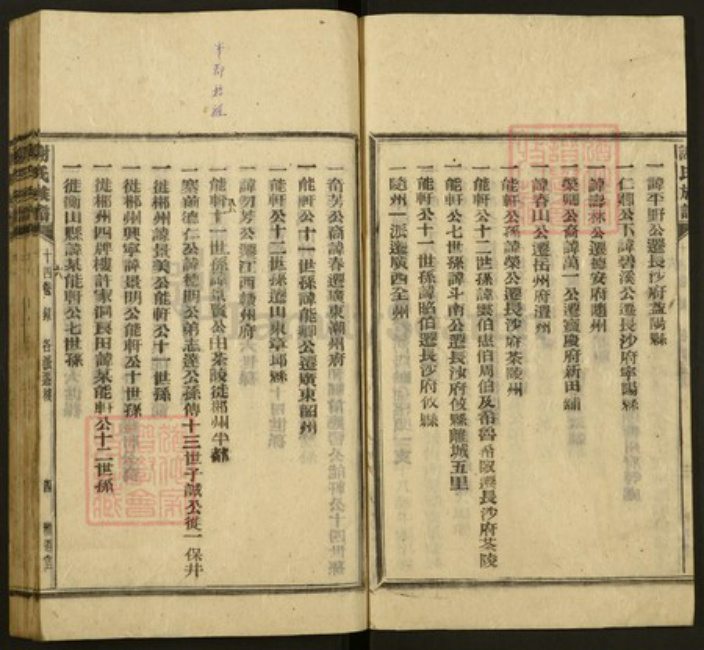 謝氏族譜
一諱平野公遷長沙府益陽縣
一仁卿公下諱碧溪公遷長沙府寧陽縣
一諱壽林公遷德安府隨州
一榮卿公裔諱萬一公遷寶慶府新田鋪
一諱春山公遷岳州府澧州
一能軒公孫諱榮公遷長沙府茶陵州
一能軒公十二世孫諱雲伯惠伯周伯及希魯希敬遷長沙府茶陵
一能軒公七世孫諱斗南公遷長沙府攸縣離城五里
一能軒公十一世孫諱昭伯遷長沙府攸縣
一隨州一派遷廣西全州
一奇芳公裔諱春遷廣東潮州府
一能軒公十一世孫諱能卿公遷廣東韶州
一能軒公十二世孫遷山東章邱縣
一諱勿芳公遷江西贛州府
一能軒十一世孫諱景賢公由茶陵徙郴州半都
一寨前德仁公諱穗明公弟志達公孫傳十三世子誠公徙一保井
一徙郴州諱景美公能軒公十一世孫
一徙郴州興寧諱景明公能軒公十世孫
一徙郴州四牌樓許家洞良田諱某能軒公十二世孫
一徙衡山縣諱某能軒公七世孫
謝氏族譜
十四卷 錄
四